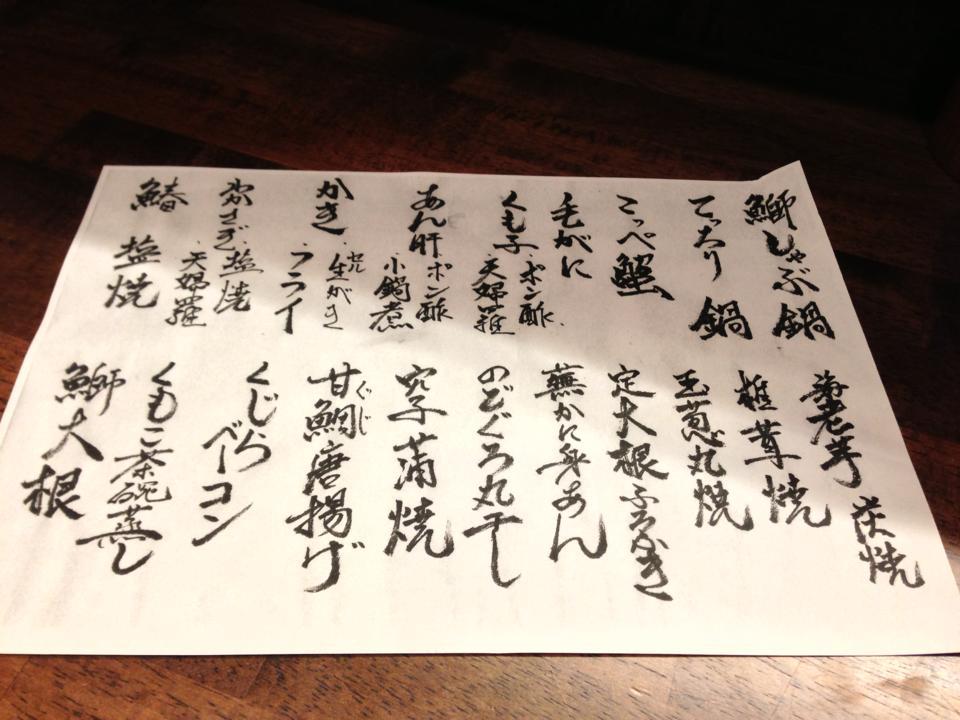 鰤しゃぶ鍋
てっちり鍋
こっぺ蟹
毛がに
くも子・ポン酢
・天婦羅
あん肝・ポン酢
・小鍋煮
かき・生がき
・フライ
わかさぎ・塩焼
・天婦羅
鰆 塩焼
海老芋
椎茸焼
玉葱丸焼
定大根ふろふき
蕪かに身あん
のどぐろ丸干し
穴子蒲焼
甘鯛唐揚げ
ぐじ
くじらベーコン
くもこ茶碗蒸し
鰤大根